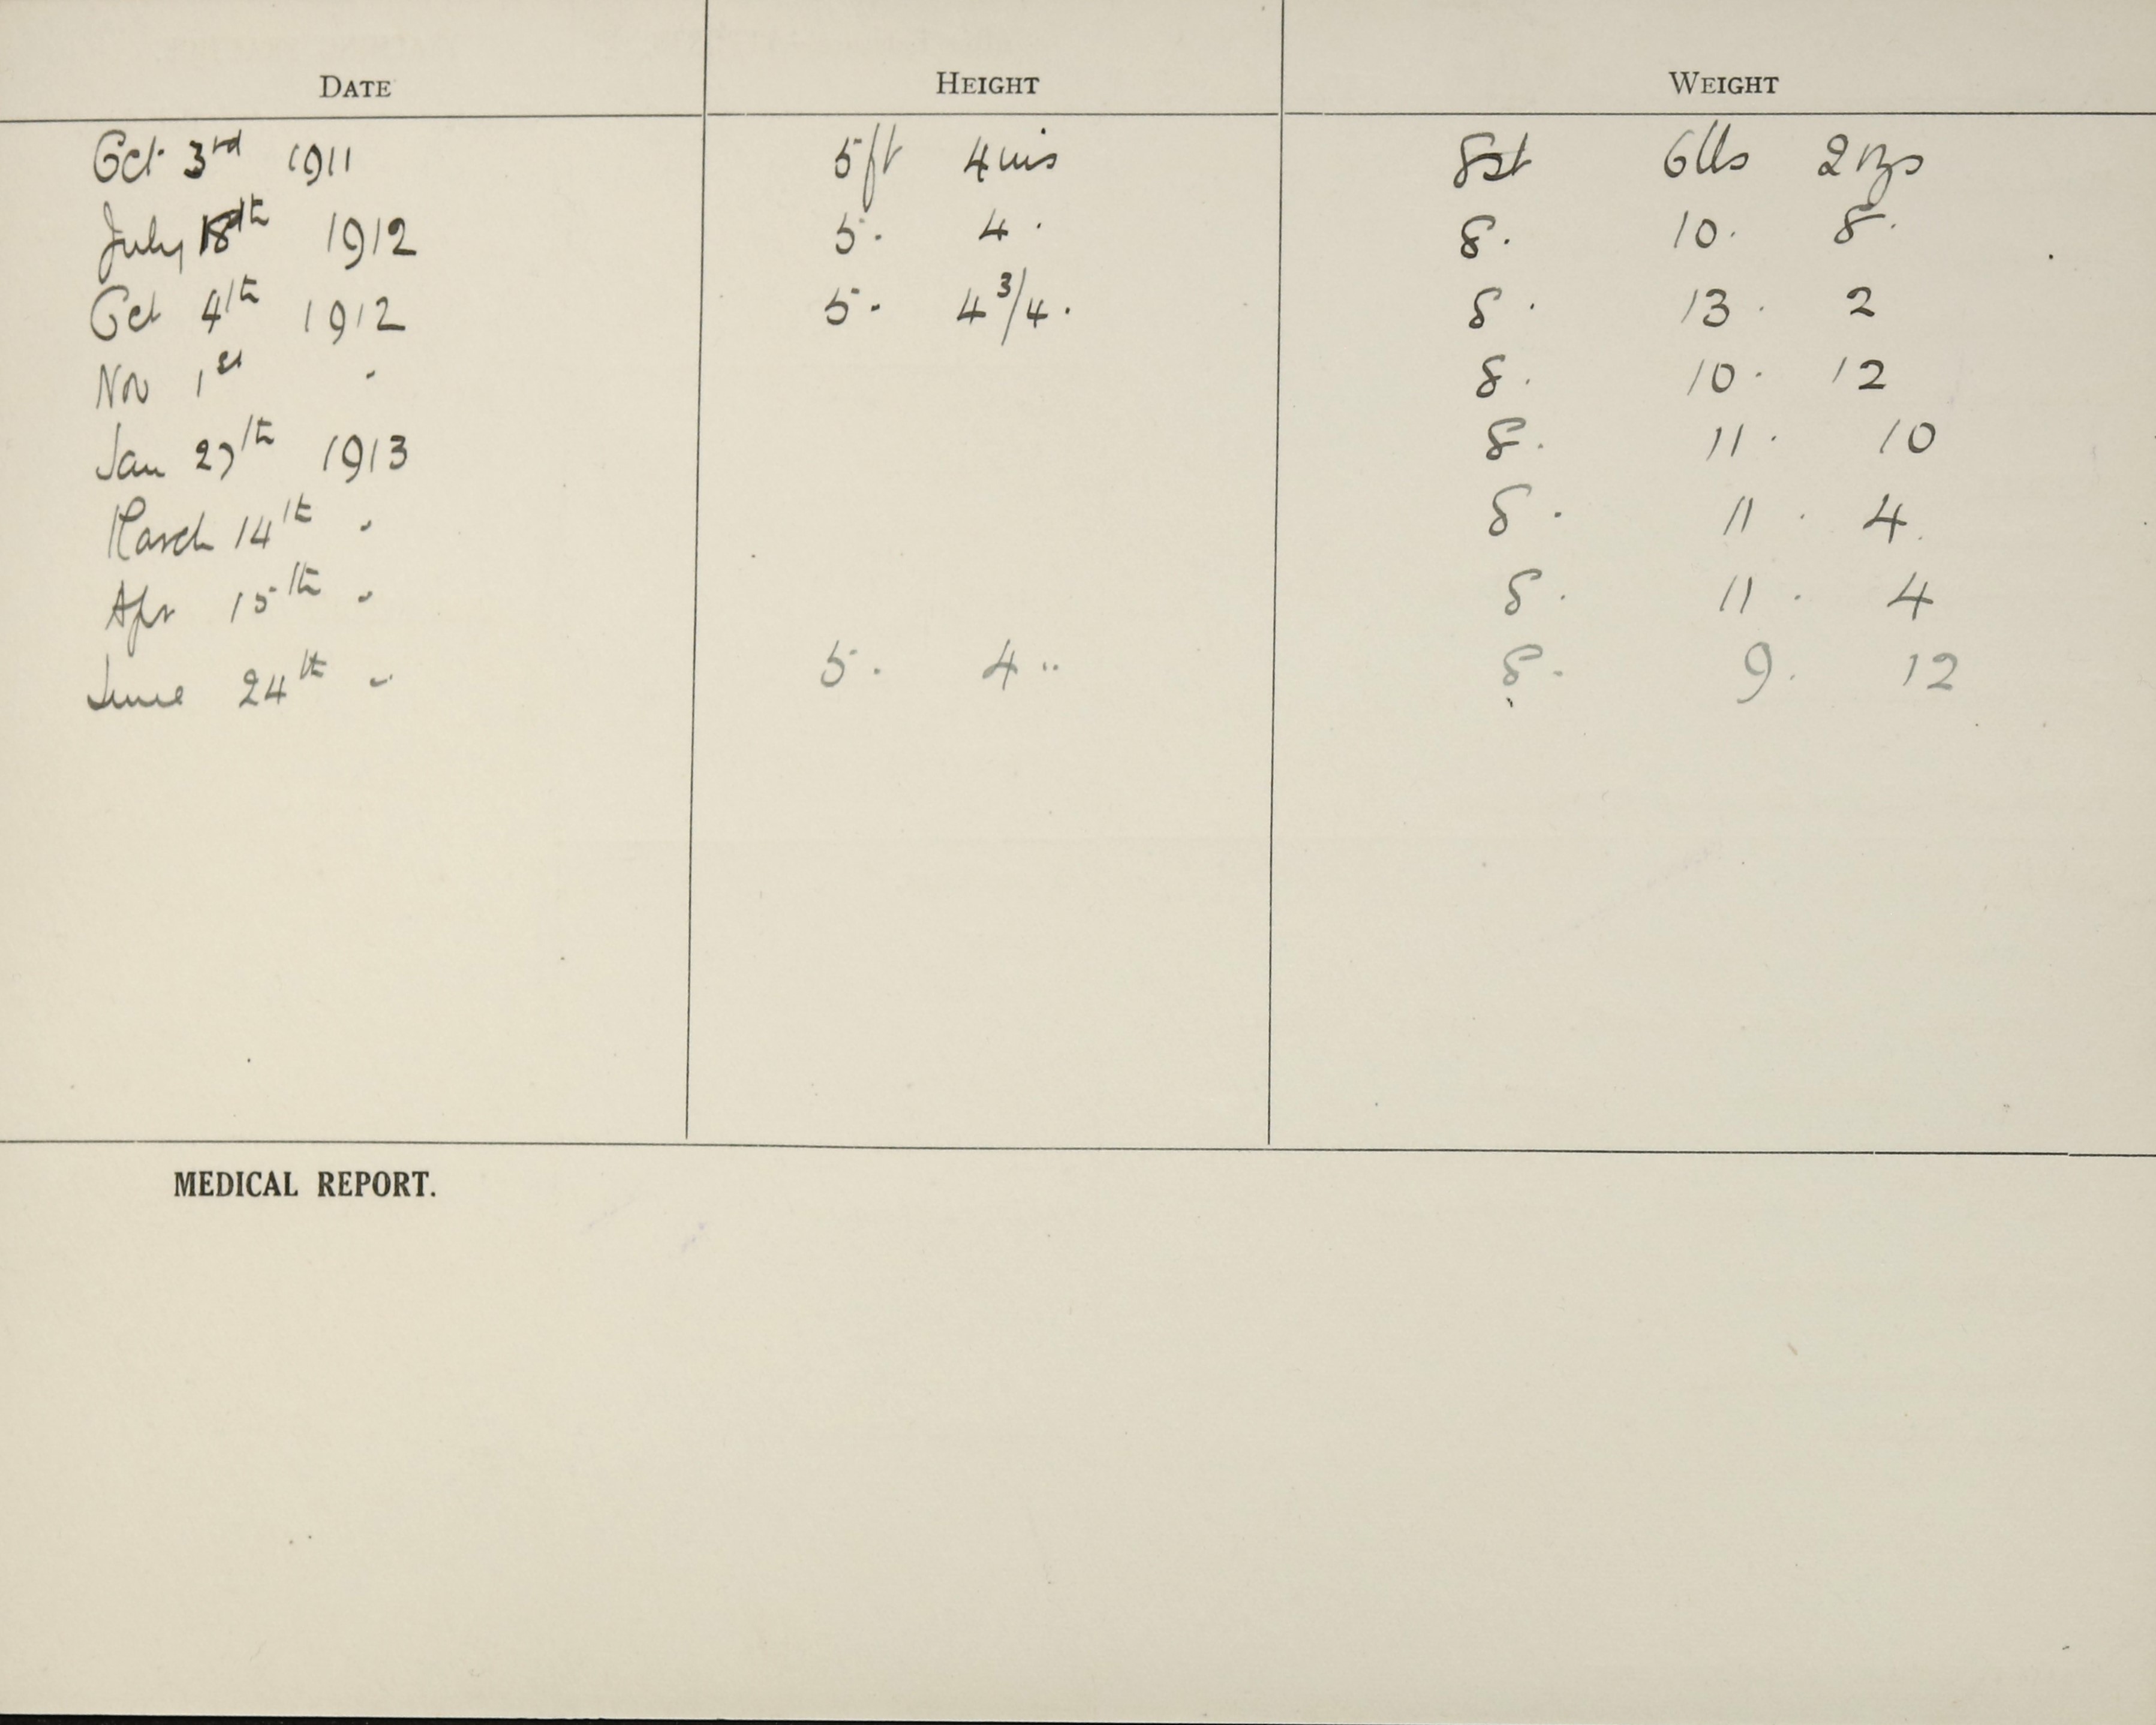 DATE HEIGHT WEIGHT
Oct 3rd 1911 5ft 4ins 8st 6lbs 2ozs
July 18th 1912 5. 4. 8. 10. 8.
Oct 4th 1912 5. 4 3/4. 8. 13. 2
Nov 1st " 8. 10. 12
Jan 27th 1913 8. 11. 10
March 14th " 8. 11. 4.
Apr 15th " 8. 11. 4
June 24th " 5. 4.. 8. 9. 12
MEDICAL REPORT.